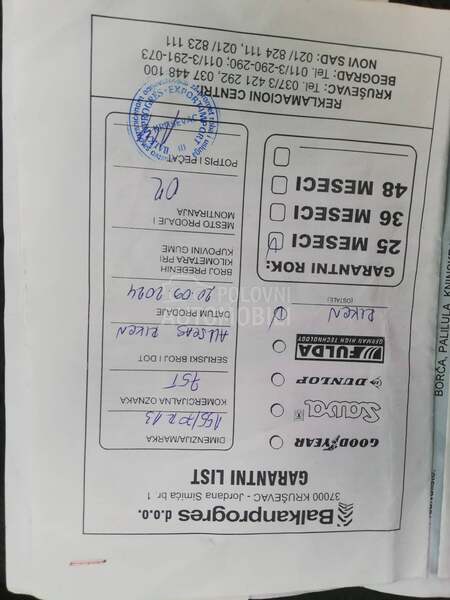 Balkanprogres d.o.o.
37000 KRUŠEVAC - Jordana Simića br 1
GARANTNI LIST
GOODYEAR
Sava
DUNLOP
FULDA
GERMAN HIGH TECHNOLOGY
RIKEN
(OSTALE)
GARANTNI ROK:
25 MESECI
36 MESECI
48 MESECI
155/70 R 13
DIMENZIJA/MARKA
75T
KOMERCIJALNA OZNAKA
SERIJSKI BROJ I DOT
ALLSEAS RIKEN
DATUM PRODAJE
20.09.2024
BROJ PREĐENIH
KILOMETARA PRI
KUPOVINI GUME
MESTO PRODAJE I
MONTIRANJA
POTPIS I PEČAT
REKLAMACIONI CENTRI:
KRUŠEVAC: Tel. 037/3 421 292, 037 448 100
BEOGRAD: Tel. 011/3-290-290; 011/3-291-073
NOVI SAD: 021/ 824 111, 021/ 823 111
EXPORT-IMPORT
KRUŠEVAC
BORČA, PALILULA
POLOVNI
AUTOMOBILI